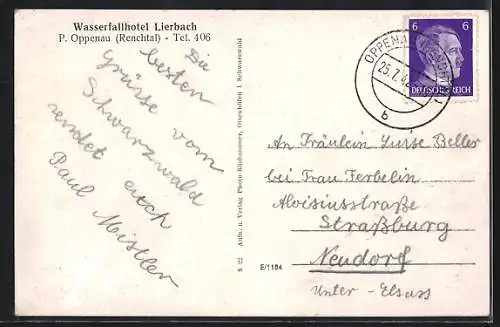 Wasserfallhotel Lierbach
P. Oppenau (Renchtal) - Tel. 406
Die
besten
Grüsse vom
Schwarzwald
sendet euch
Paul Mistler
Aufn. u. Verlag Photo-Käshammer, Ottenhöfen i. Schwarzwald
S 22
E/1104
6 6
DEUTSCHES REICH
OPPENAU
25.7.4
b
An Fräulein Beller
bei Frau Ferbelin
Aloisiusstraße
Straßburg
Neudorf
Unter - Elsass